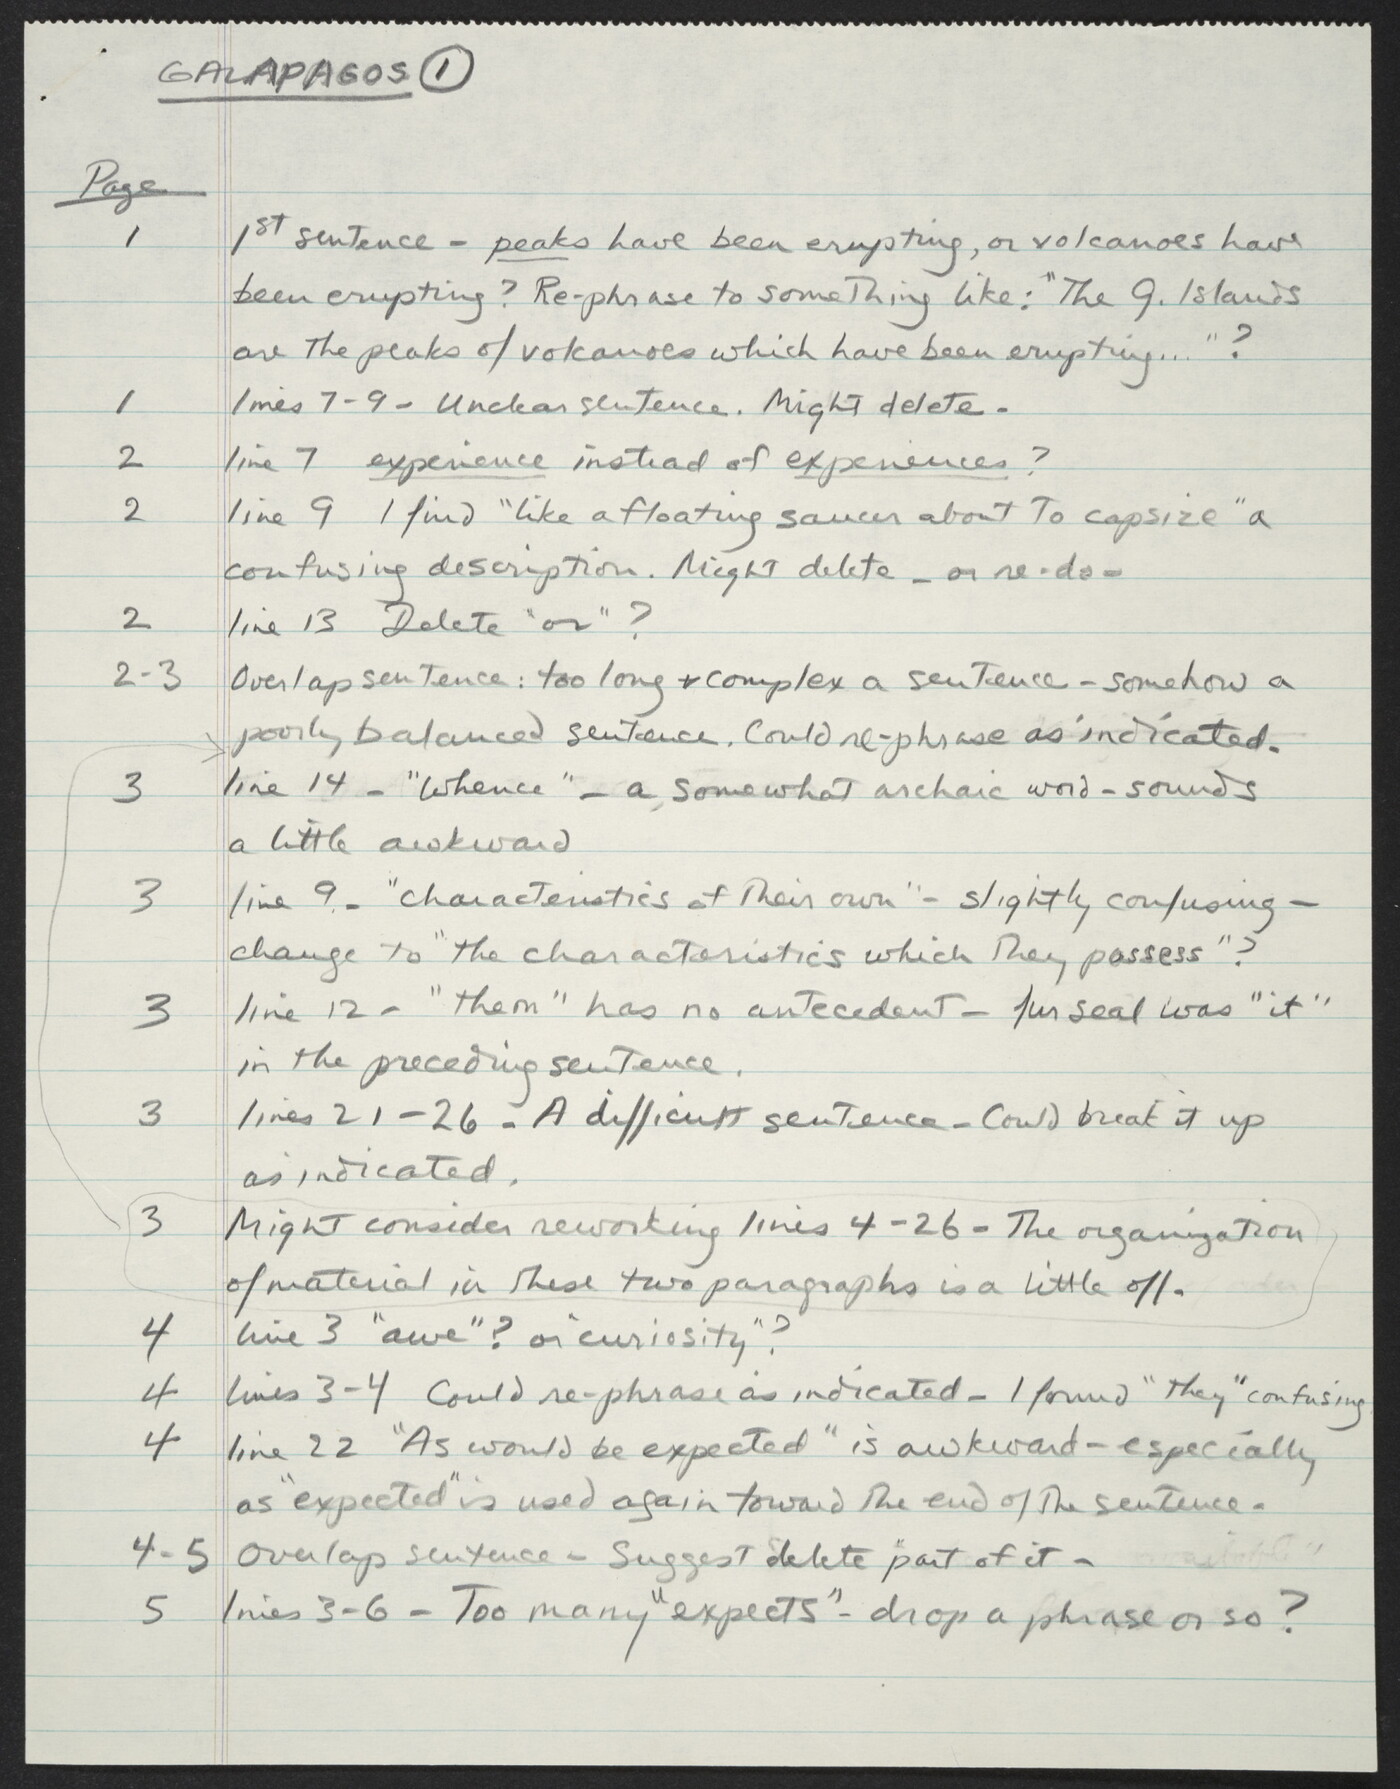 GALAPAGOS 1
Page
1 1st sentence - peaks have been erupting, or volcanoes have
been erupting? Re-phrase to something like: "The G. Islands
are the peaks of volcanoes which have been erupting..."?
1 lines 7-9 - Unclear sentence. Might delete.
2 line 7 experience instead of experiences?
2 line 9 I find "like a floating saucer about to capsize" a
confusing description. Might delete - or re-do -
2 line 13 Delete "or"?
2-3 Overlap sentence: too long & complex a sentence - somehow a
poorly balanced sentence. Could re-phrase as indicated.
3 line 14 - "Whence" - a somewhat archaic word - sounds
a little awkward
3 line 9 - "characteristics of their own" - slightly confusing -
change to "the characteristics which they possess"?
3 line 12 - "them" has no antecedent - fur seal was "it"
in the preceding sentence.
3 lines 21-26 - A difficult sentence - Could break it up
as indicated.
3 Might consider reworking lines 4-26 - The organization
of material in these two paragraphs is a little off.
4 line 3 "awe"? or "curiosity"?
4 lines 3-4 Could re-phrase as indicated - I found "they" confusing
4 line 22 "As would be expected" is awkward - especially
as "expected" is used again toward the end of the sentence.
4-5 Overlap sentence - Suggest delete part of it -
5 lines 3-6 - Too many "expects" - drop a phrase or so?